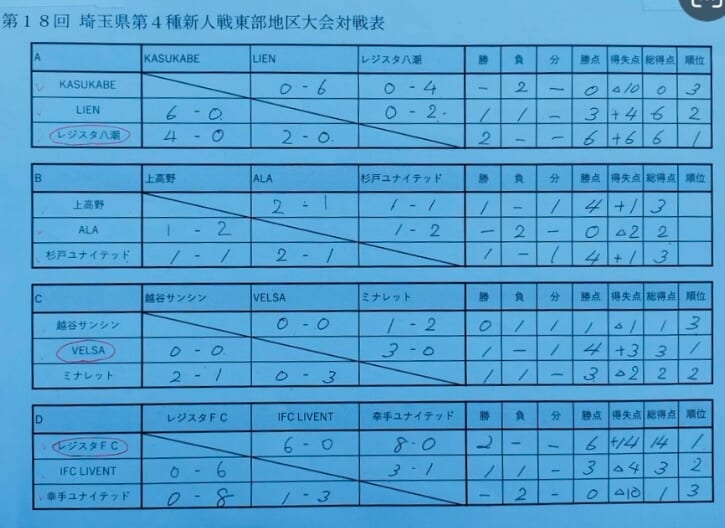 第18回 埼玉県第4種新人戦東部地区大会対戦表
A KASUKABE LIEN レジスタ八潮 勝 負 分 勝点 得失点 総得点 順位
KASUKABE 0 - 6 0 - 4 - 2 - 0 △10 0 3
LIEN 6 - 0 0 - 2 1 1 - 3 +4 6 2
レジスタ八潮 4 - 0 2 - 0 2 - - 6 +6 6 1
B 上高野 ALA 杉戸ユナイテッド 勝 負 分 勝点 得失点 総得点 順位
上高野 2 - 1 1 - 1 1 - 1 4 +1 3
ALA 1 - 2 1 - 2 - 2 - 0 △2 2
杉戸ユナイテッド 1 - 1 2 - 1 1 - 1 4 +1 3
C 越谷サンシン VELSA ミナレット 勝 負 分 勝点 得失点 総得点 順位
越谷サンシン 0 - 0 1 - 2 0 1 1 1 △1 1 3
VELSA 0 - 0 3 - 0 1 - 1 4 +3 3 1
ミナレット 2 - 1 0 - 3 1 1 - 3 △2 2 2
D レジスタFC IFC LIVENT 幸手ユナイテッド 勝 負 分 勝点 得失点 総得点 順位
レジスタFC 6 - 0 8 - 0 2 - - 6 +14 14 1
IFC LIVENT 0 - 6 3 - 1 1 1 - 3 △4 3 2
幸手ユナイテッド 0 - 8 1 - 3 - 2 - 0 △10 1 3